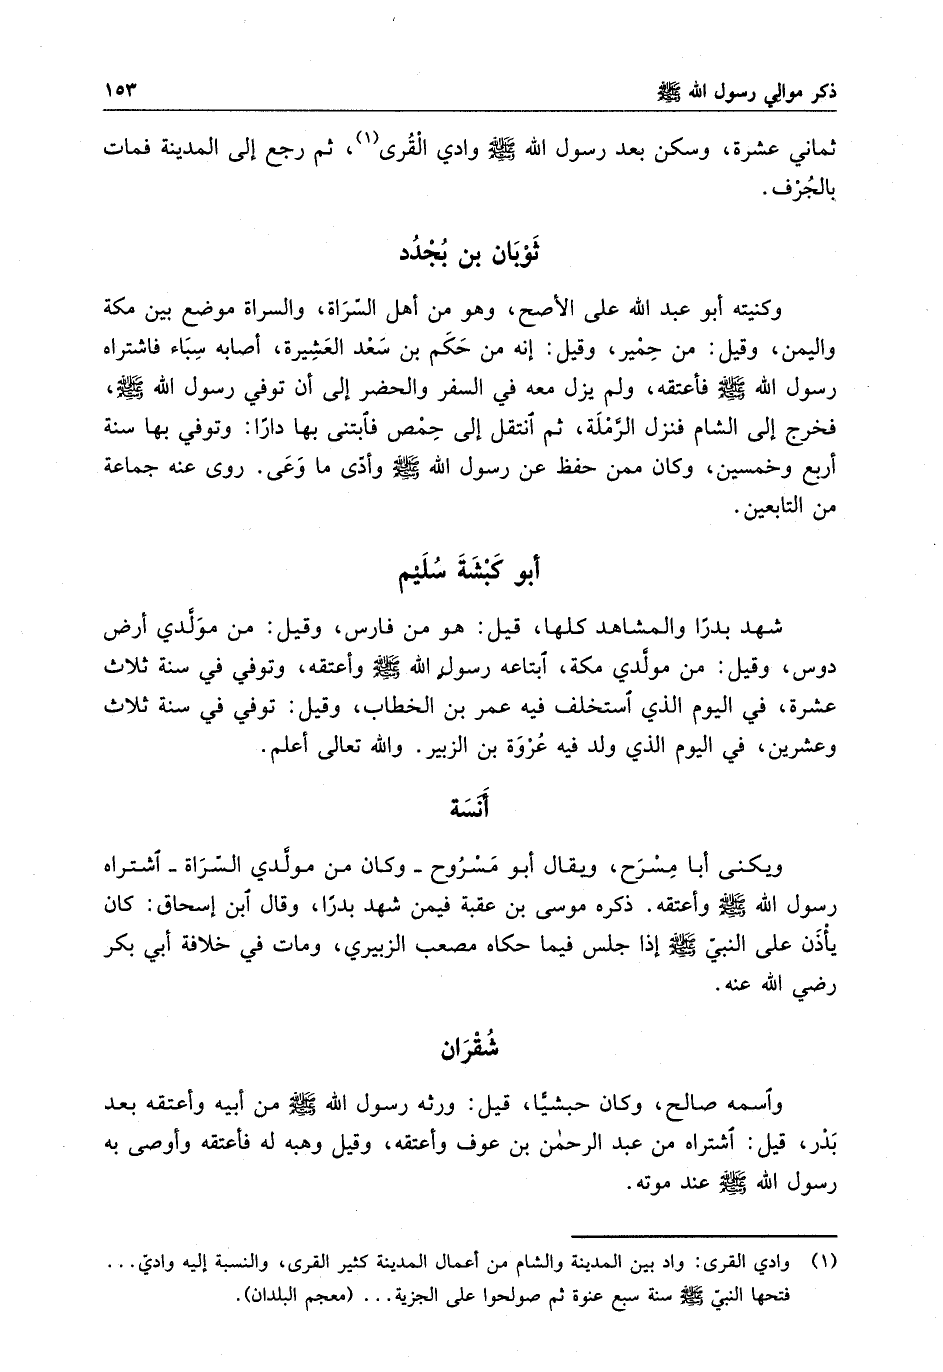 ذكر موالي رسول الله ﷺ ١٥٣
ثماني عشرة، وسكن بعد رسول الله ﷺ وادي الْقُرى(١)، ثم رجع إلى المدينة فمات
بالجُرْف.
ثَوْبَان بن بُجْدُد
وكنيته أبو عبد الله على الأصح، وهو من أهل السَّرَاة، والسراة موضع بين مكة
واليمن، وقيل: من حِمْير، وقيل: إنه من حَكَم بن سَعْد العَشِيرة، أصابه سِبَاء فاشتراه
رسول الله ﷺ فأعتقه، ولم يزل معه في السفر والحضر إلى أن توفي رسول الله ﷺ،
فخرج إلى الشام فنزل الرَّمْلَة، ثم ٱنتقل إلى حِمْص فٱبتنى بها دارًا: وتوفي بها سنة
أربع وخمسين، وكان ممن حفظ عن رسول الله ﷺ وأدّى ما وَعَى. روى عنه جماعة
من التابعين.
أبو كَبْشَةَ سُلَيْم
شهد بدرًا والمشاهد كلها، قيل: هو من فارس، وقيل: من موَلَّدي أرض
دوس، وقيل: من مولَّدي مكة، ٱبتاعه رسول الله ﷺ وأعتقه، وتوفي في سنة ثلاث
عشرة، في اليوم الذي ٱستخلف فيه عمر بن الخطاب، وقيل: توفي في سنة ثلاث
وعشرين، في اليوم الذي ولد فيه عُرْوَة بن الزبير. والله تعالى أعلم.
أَنَسَة
ويكنى أبا مِسْرَح، ويقال أبو مَسْرُوح ـ وكان من مولَّدي السَّرَاة ـ ٱشتراه
رسول الله ﷺ وأعتقه. ذكره موسى بن عقبة فيمن شهد بدرًا، وقال ٱبن إسحاق: كان
يأْذَن على النبيّ ﷺ إذا جلس فيما حكاه مصعب الزبيري، ومات في خلافة أبي بكر
رضي الله عنه.
شُقْرَان
وٱسمه صالح، وكان حبشيًّا، قيل: ورثه رسول الله ﷺ من أبيه وأعتقه بعد
بَدْر، قيل: ٱشتراه من عبد الرحمٰن بن عوف وأعتقه، وقيل وهبه له فأعتقه وأوصى به
رسول الله ﷺ عند موته.
(١) وادي القرى: واد بين المدينة والشام من أعمال المدينة كثير القرى، والنسبة إليه واديّ...
فتحها النبيّ ﷺ سنة سبع عنوة ثم صولحوا على الجزية... (معجم البلدان).